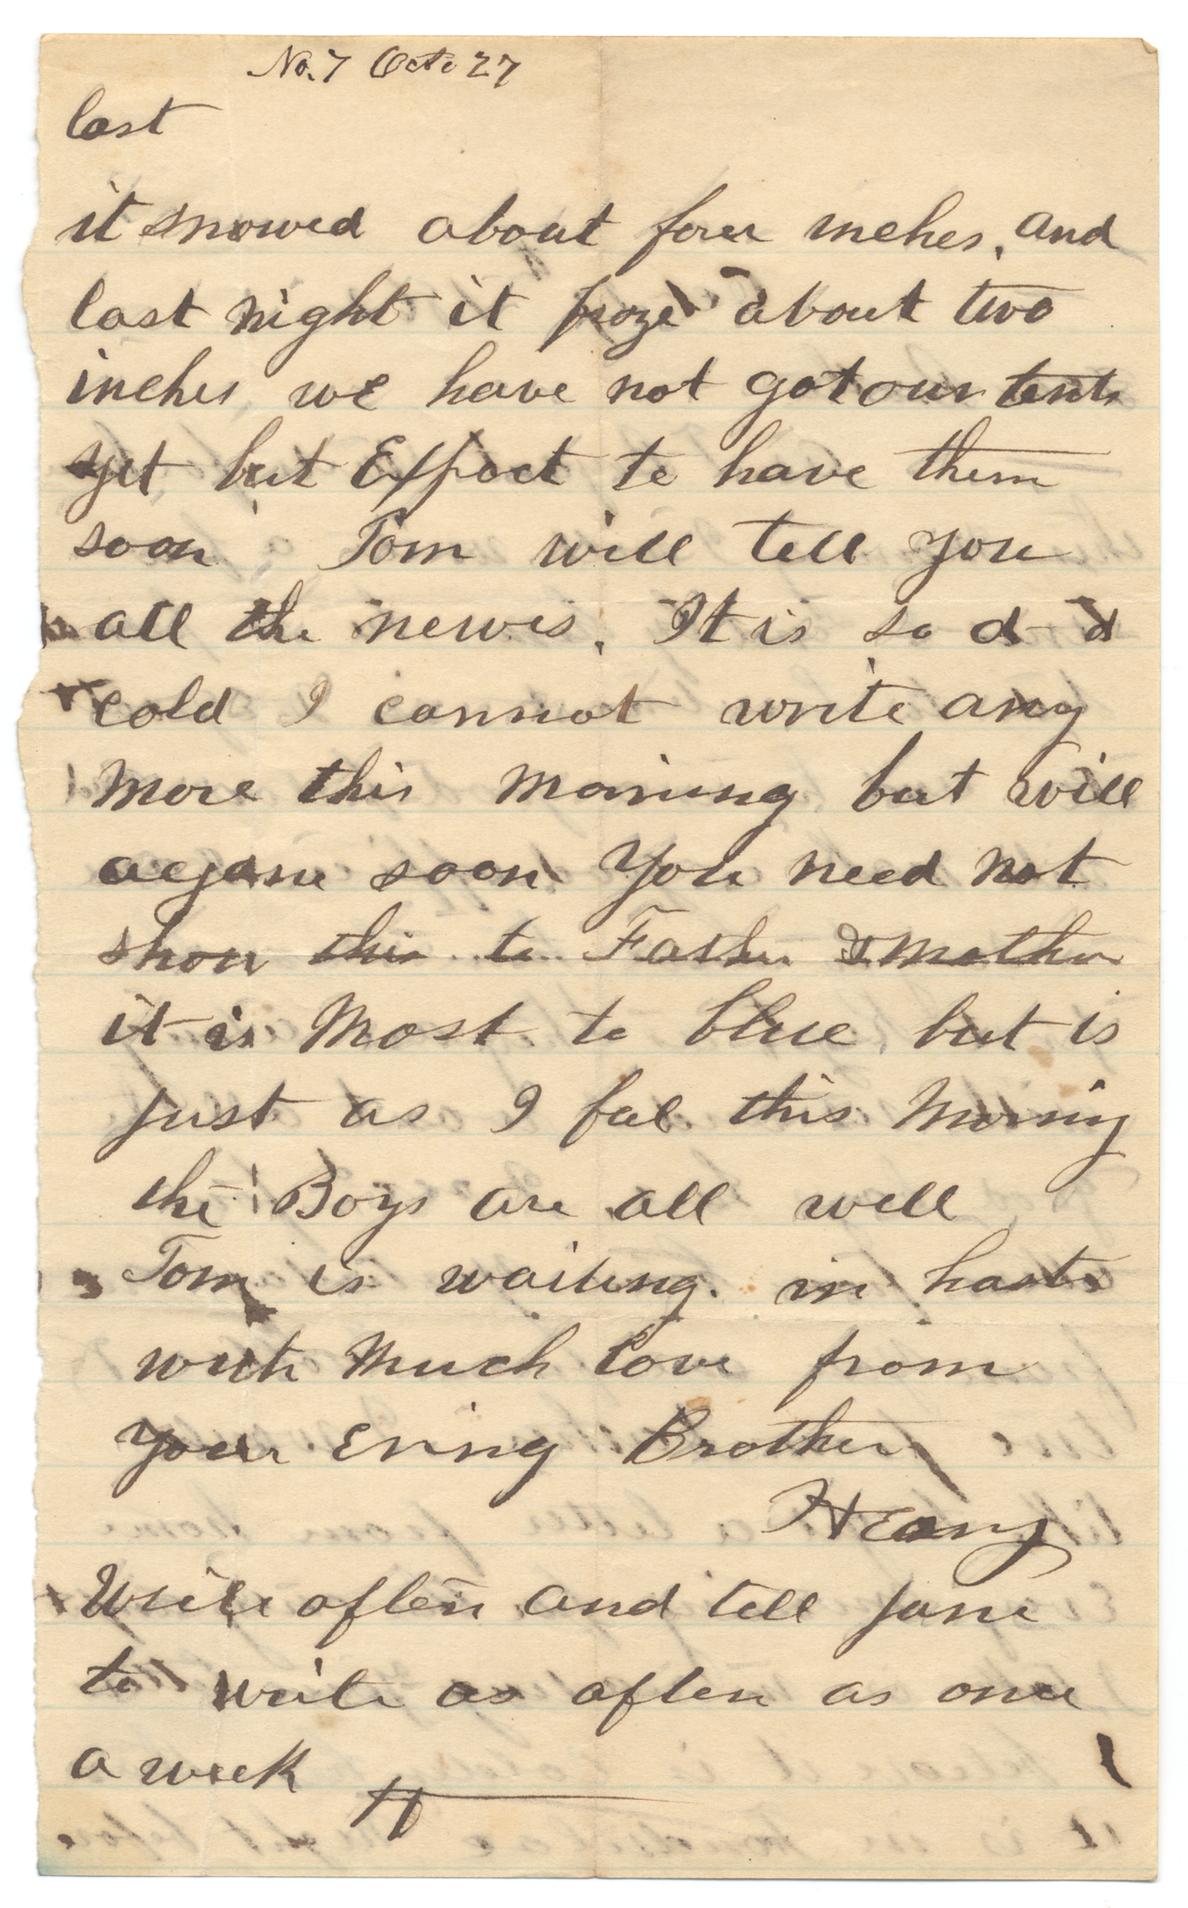 No. 7 Oct. 27
last
it snowed about four inches, and
last night it froze about two
inches we have not got our tents
yet but Expect to have them
soon Tom will tell you
all the newes. It is so d—d
cold I cannot write any
more this morning but will
agane soon You need not
show this to Father & Mother
it is Most to blue but is
just as I feel this Morning
the Boys are all well
Tom is waiting. in haste
with Much love from
your Ering Brother
Henry
Write often and tell Jane
to write as often as once
a week H